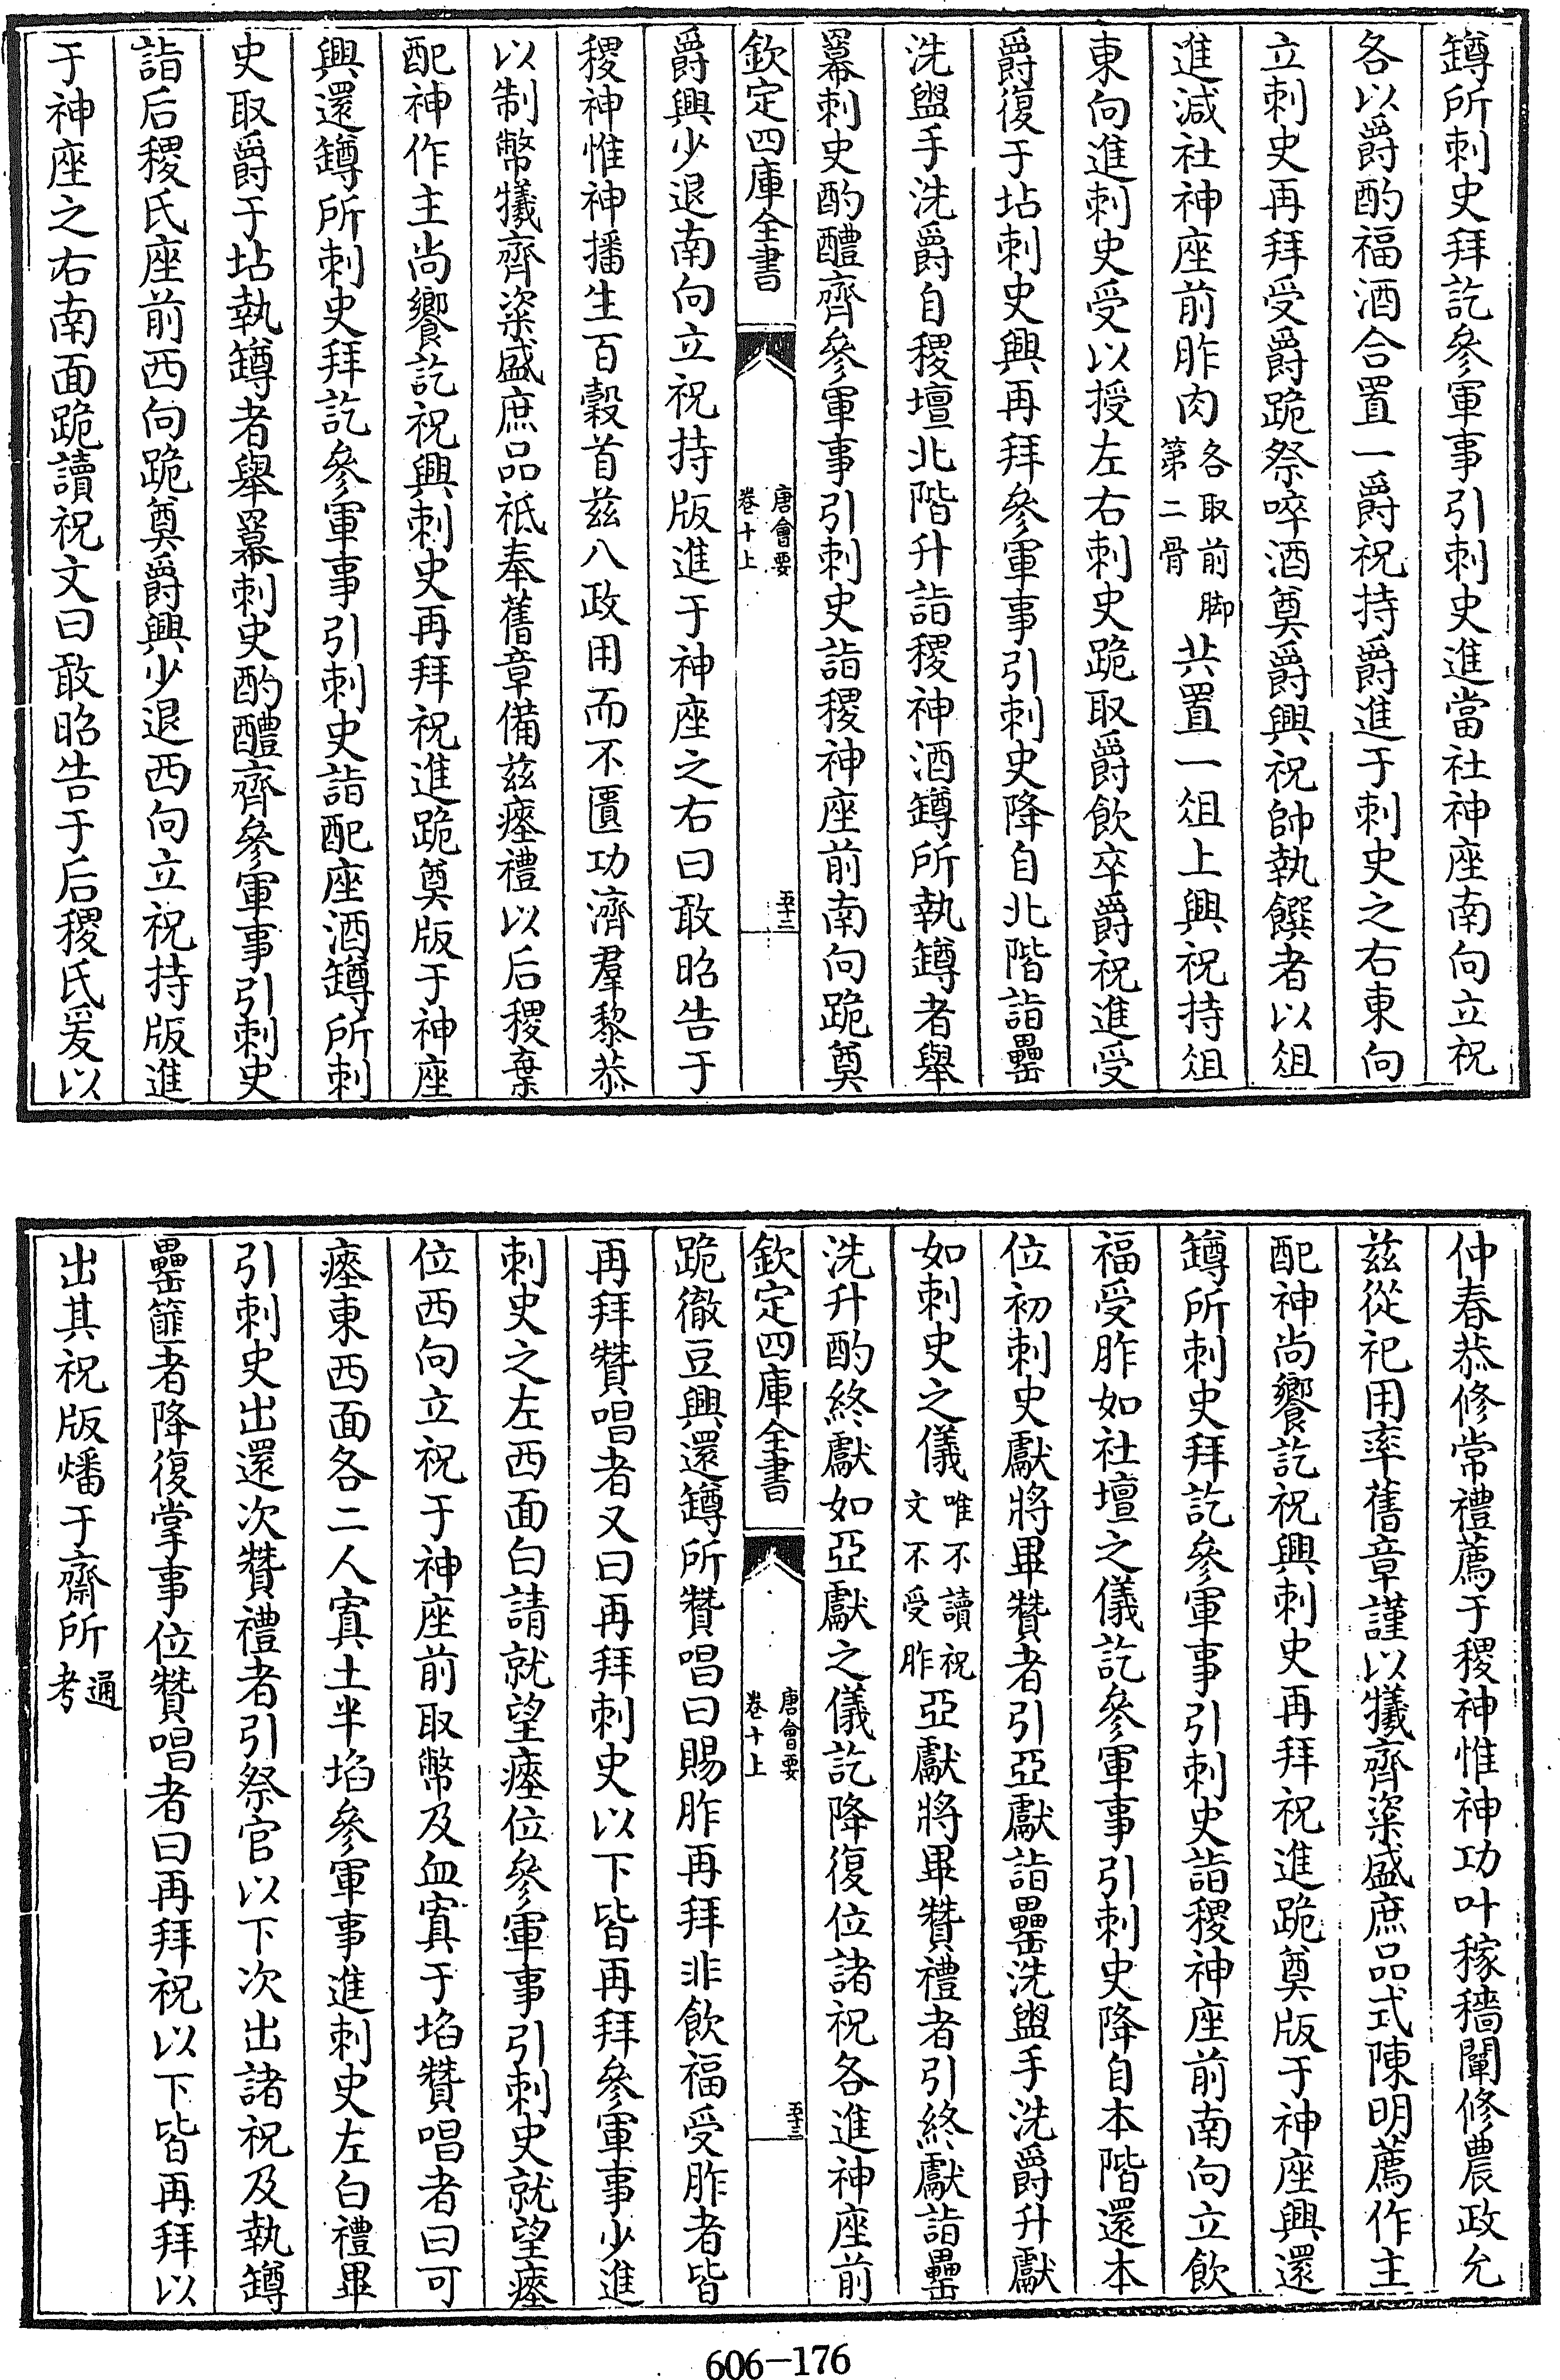 鐏所刺史拜訖參軍事引刺史進當社神座南向立祝
各以爵酌福酒合置一爵祝持爵進于刺史之右東向
立刺史再拜受爵跪祭啐酒奠爵興祝帥執饌者以俎
進減社神座前胙肉各取前脚第二骨共置一俎上興祝持俎
東向進刺史受以授左右刺史跪取爵飲卒爵祝進受
爵復于坫刺史興再拜參軍事引刺史降自北階詣罍
洗盥手洗爵自稷壇北階升詣稷神酒鐏所執鐏者舉
羃刺史酌醴齊參軍事引刺史詣稷神座前南向跪奠
欽定四庫全書 唐會要卷十上 五十三
爵興少退南向立祝持版進于神座之右曰敢昭告于
稷神惟神播生百穀首兹八政用而不匱功濟羣黎恭
以制幣犧齊粢盛庶品祗奉舊章備兹瘞禮以后稷棄
配神作主尚饗訖祝興刺史再拜祝進跪奠版于神座
興還鐏所刺史拜訖參軍事引刺史詣配座酒鐏所刺
史取爵于坫執鐏者舉羃刺史酌醴齊參軍事引刺史
詣后稷氏座前西向跪奠爵興少退西向立祝持版進
于神座之右南面跪讀祝文曰敢昭告于后稷氏爰以
仲春恭修常禮薦于稷神惟神功叶稼穡闡修農政允
兹從祀用率舊章謹以犧齊粢盛庶品式陳明薦作主
配神尚饗訖祝興刺史再拜祝進跪奠版于神座興還
鐏所刺史拜訖參軍事引刺史詣稷神座前南向立飲
福受胙如社壇之儀訖參軍事引刺史降自本階還本
位初刺史獻將畢贊者引亞獻詣罍洗盥手洗爵升獻
如刺史之儀唯不讀祝文不受胙亞獻將畢贊禮者引終獻詣罍
洗升酌終獻如亞獻之儀訖降復位諸祝各進神座前
欽定四庫全書 唐會要卷十上 五十三
跪徹豆興還鐏所贊唱曰賜胙再拜非飲福受胙者皆
再拜贊唱者又曰再拜刺史以下皆再拜參軍事少進
刺史之左西面白請就望瘞位參軍事引刺史就望瘞
位西向立祝于神座前取幣及血寘于埳贊唱者曰可
瘞東西面各二人寘土半埳參軍事進刺史左白禮畢
引刺史出還次贊禮者引祭官以下次出諸祝及執鐏
罍篚者降復掌事位贊唱者曰再拜祝以下皆再拜以
出其祝版燔于齋所通考
606-176